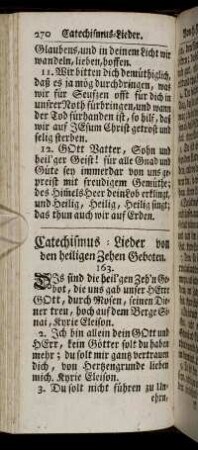 270 Catechismus-Lieder.
Glaubens, und in deinem Licht wir
wandeln, lieben, hoffen.
11. Wir bitten dich demüthiglich,
daß es ja mög durchdringen, was
wir für Seufzen offt für dich in
unserer Noth fürbringen, und wann
der Tod fürhanden ist, so hilf, daß
wir auf JEsum Christ getrost und
selig sterben.
12. GOtt Vatter, Sohn und
heil'ger Geist! für alle Gnad und
Güte sey immerdar von uns ge-
preist mit freudigem Gemüthe;
des Him̃els Heer dein Lob erklingt,
und Heilig, Heilig, Heilig singt;
das thun auch wir auf Erden.
Catechismus-Lieder von
den heiligen Zehen Geboten.
163.
DIs sind die heil'gen Zeh'n Ge-
bot, die uns gab unser HErr
GOtt, durch Mosen, seinen Die-
ner treu, hoch auf dem Berge Si-
nai, Kyrie Eleison.
2. Ich bin allein dein GOtt und
HErr, kein Götter solt du haben
mehr; du solt mir gantz vertrauen
dich, von Hertzengrunde lieben
mich. Kyrie Eleison.
3. Du solt nicht führen zu Un-
ehrn,